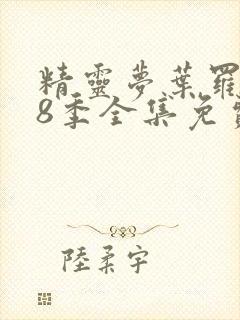 精靈夢葉羅
8季全集免費
陸柔宇